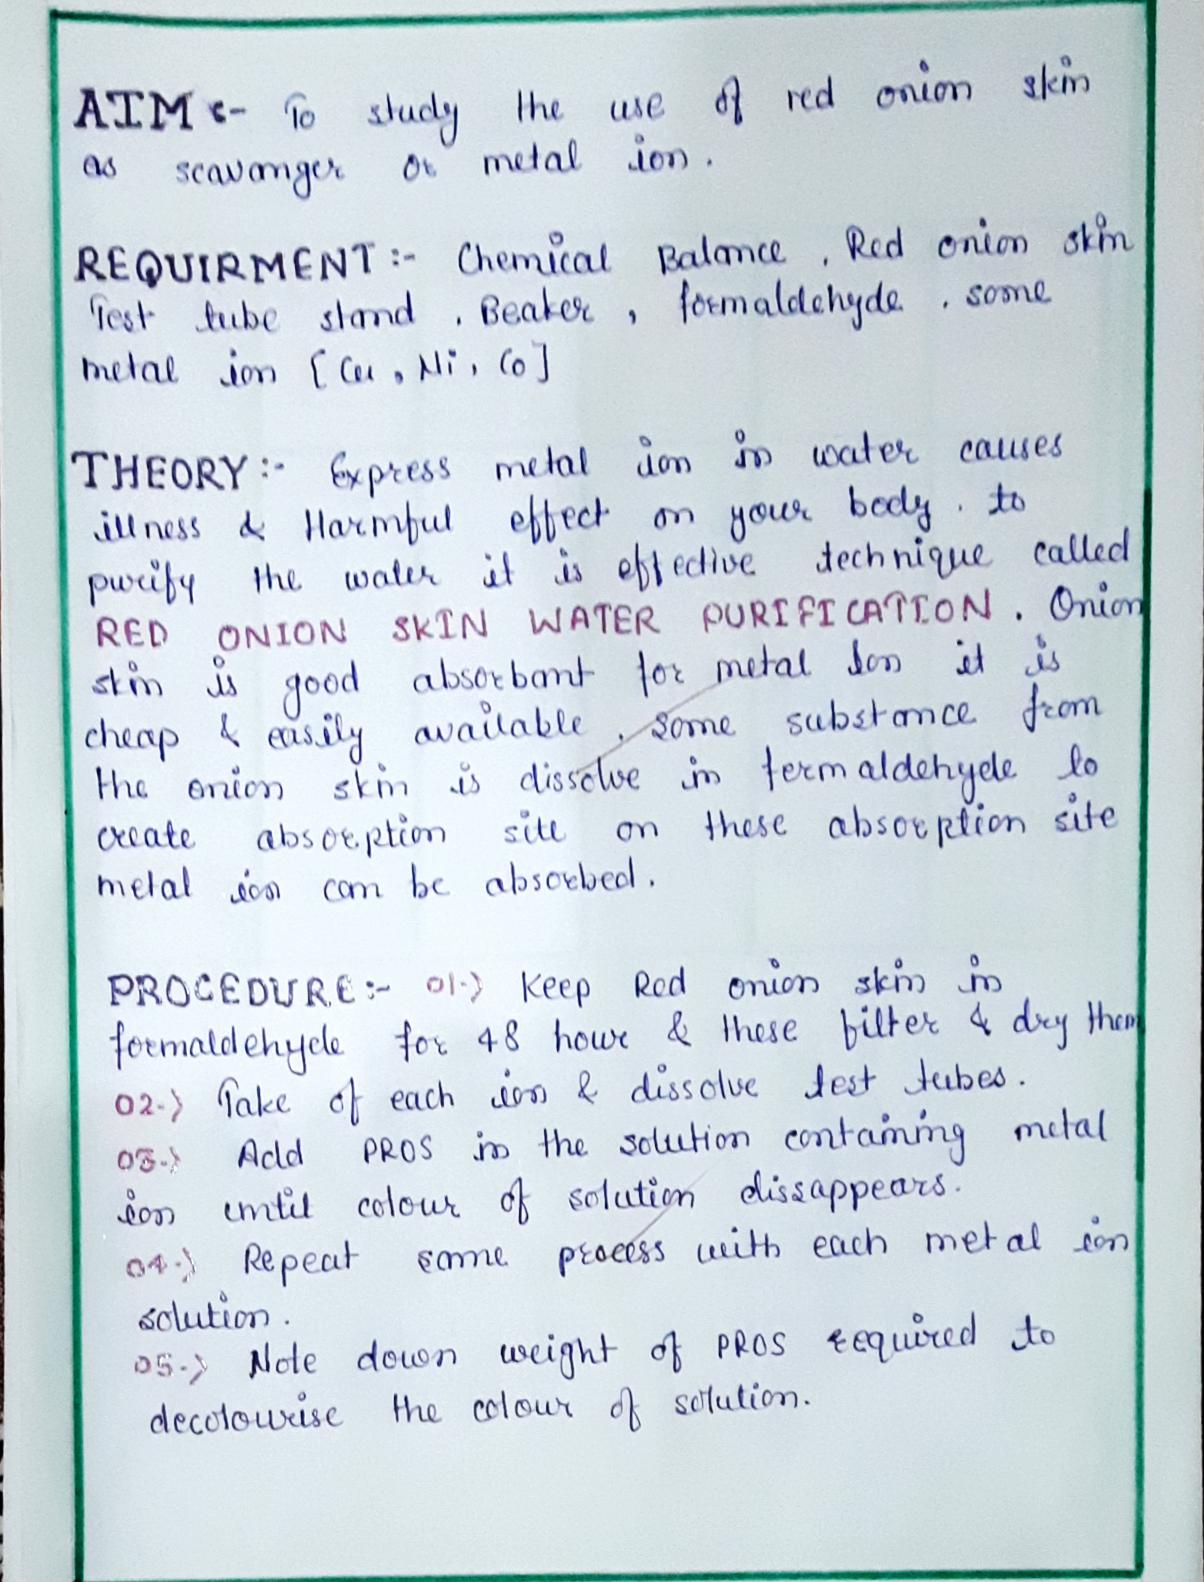 AIM :- To study the use of red onion skin
as scavanger or metal ion.
REQUIRMENT :- Chemical Balance, Red onion skin
Test tube stand, Beaker, formaldehyde, some
metal ion [Cu, Ni, Co]
THEORY :- Express metal ion in water causes
illness & Harmful effect on your body. to
purify the water it is effective technique called
RED ONION SKIN WATER PURIFICATION. Onion
skin is good absorbant for metal Ion it is
cheap & easily available, some substance from
the onion skin is dissolve in formaldehyde to
create absorption site on these absorption site
metal ion can be absorbed.
PROCEDURE :- 01.) Keep Red onion skin in
formaldehyde for 48 hour & these filter & dry them
02.) Take of each ion & dissolve test tubes.
03.) Add PROS in the solution containing metal
ion until colour of solution dissappears.
04.) Repeat same process with each metal ion
solution.
05.) Note down weight of PROS required to
decolourise the colour of solution.